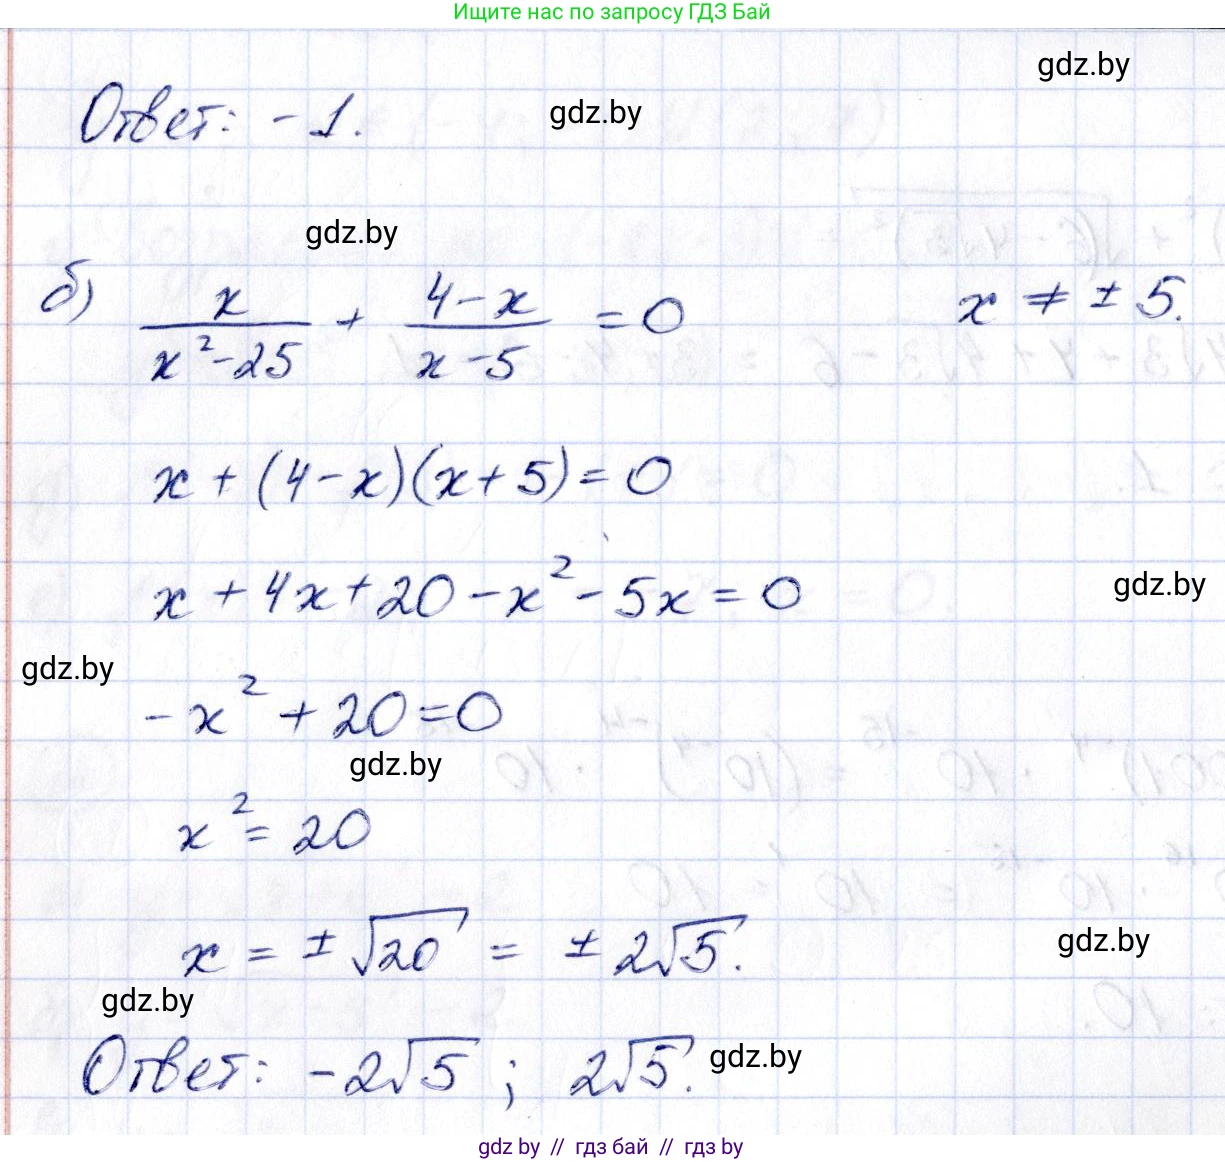 Ищите нас по запросу ГДЗ Бай
gdz.by
Ответ: -1.
gdz.by
gdz.by
б) x/(x²-25) + (4-x)/(x-5) = 0    x ≠ ± 5.
x + (4-x)(x+5) = 0
x + 4x + 20 - x² - 5x = 0
gdz.by
gdz.by
-x² + 20 = 0
gdz.by
x² = 20
x = ±√20 = ± 2√5.
gdz.by
gdz.by
Ответ: -2√5 ; 2√5.
gdz.by
gdz by // гдз бай // gdz by